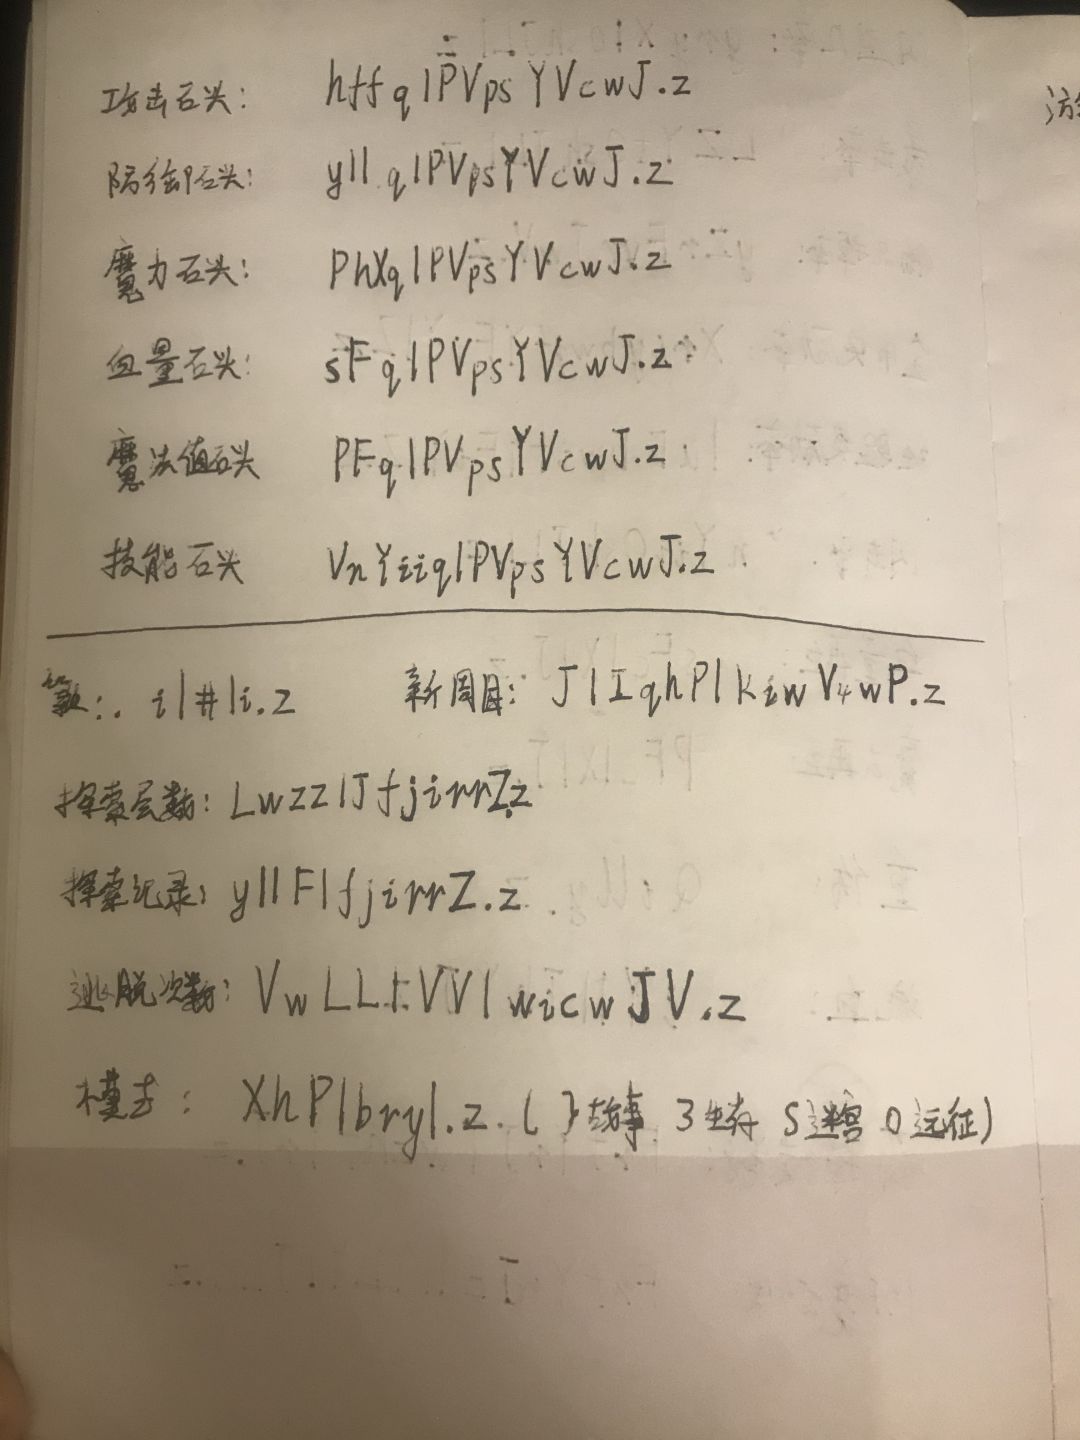 攻击石头: hffqlPVpsYVcwJ.z
防御石头: yllqlPVpsYVcwJ.z
魔力石头: PhXqlPVpsYVcwJ.z
血量石头: sFqlPVpsYVcwJ.z
魔法值石头 PFqlPVpsYVcwJ.z
技能石头 VnYiiqlPVpsYVcwJ.z
il#li.z 新周目: JlIqhPlkiwV4wP.z
探索层数: LwzzlJfjirrZ.z
探索记录: yllFlfjirrZ.z
逃脱次数: VwLLtVVlwicwJV.z
模式: XhPlbryl.z. ( }故事 3生存 S迷宫 0远征)